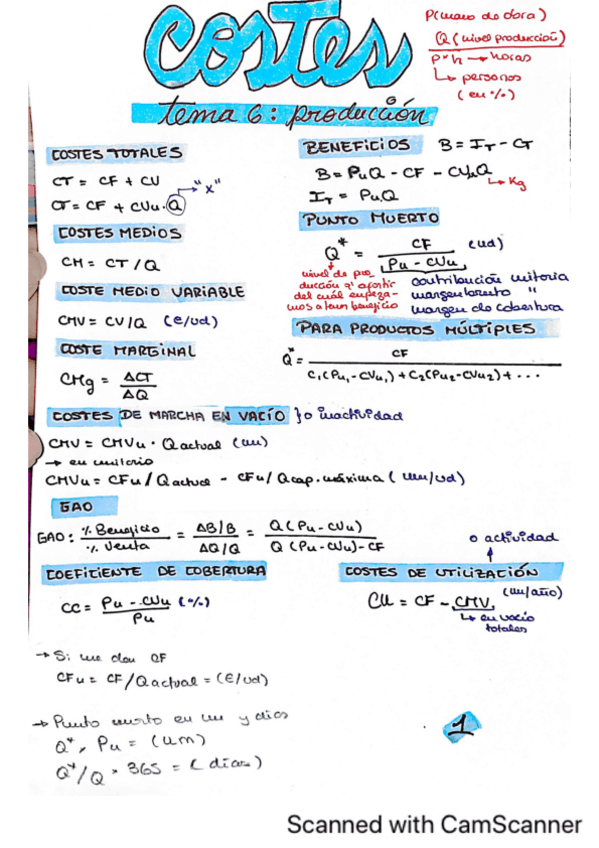 costes
tema 6: producción
P(mano de obra)
Q (nivel producción)
P*h → horas
↳ personas
(en %)
COSTES TOTALES
CT = CF + CV
CT = CF + CVu·Q → "x"
COSTES MEDIOS
CM = CT / Q
COSTE MEDIO VARIABLE
CMV = CV/Q (€/ud)
COSTE MARGINAL
CMg = ΔCT / ΔQ
BENEFICIOS B = IT - CT
B = PuQ - CF - CVuQ
↳ Kg
IT = PuQ
PUNTO MUERTO
Q* = CF / Pu - CVu (ud)
nivel de pro
ducción a partir
del cuál empeza-
mos a tener beneficio
contribución unitaria
margen bruto "
margen de cobertura
PARA PRODUCTOS MÚLTIPLES
Q* = CF / C1(Pu1 - CVu1) + C2(Pu2 - CVu2) + ...
COSTES DE MARCHA EN VACÍO } o inactividad
CMV = CMVu · Q actual (um)
→ en unitario
CMVu = CFu / Q actual - CFu / Q cap. máxima (um/ud)
GAO
GAO: % Beneficio / % Venta = ΔB/B / ΔQ/Q = Q(Pu - CVu) / Q(Pu - CVu) - CF
COEFICIENTE DE COBERTURA
CC = Pu - CVu / Pu (%)
o actividad
COSTES DE UTILIZACIÓN
CU = CF - CMV (um/año)
↳ en vacío
totales
→ Si me dan CF
CFu = CF / Q actual = (€/ud)
→ Punto muerto en um y días
Q* · Pu = (um)
Q*/Q * 365 = (días)
1
Scanned with CamScanner